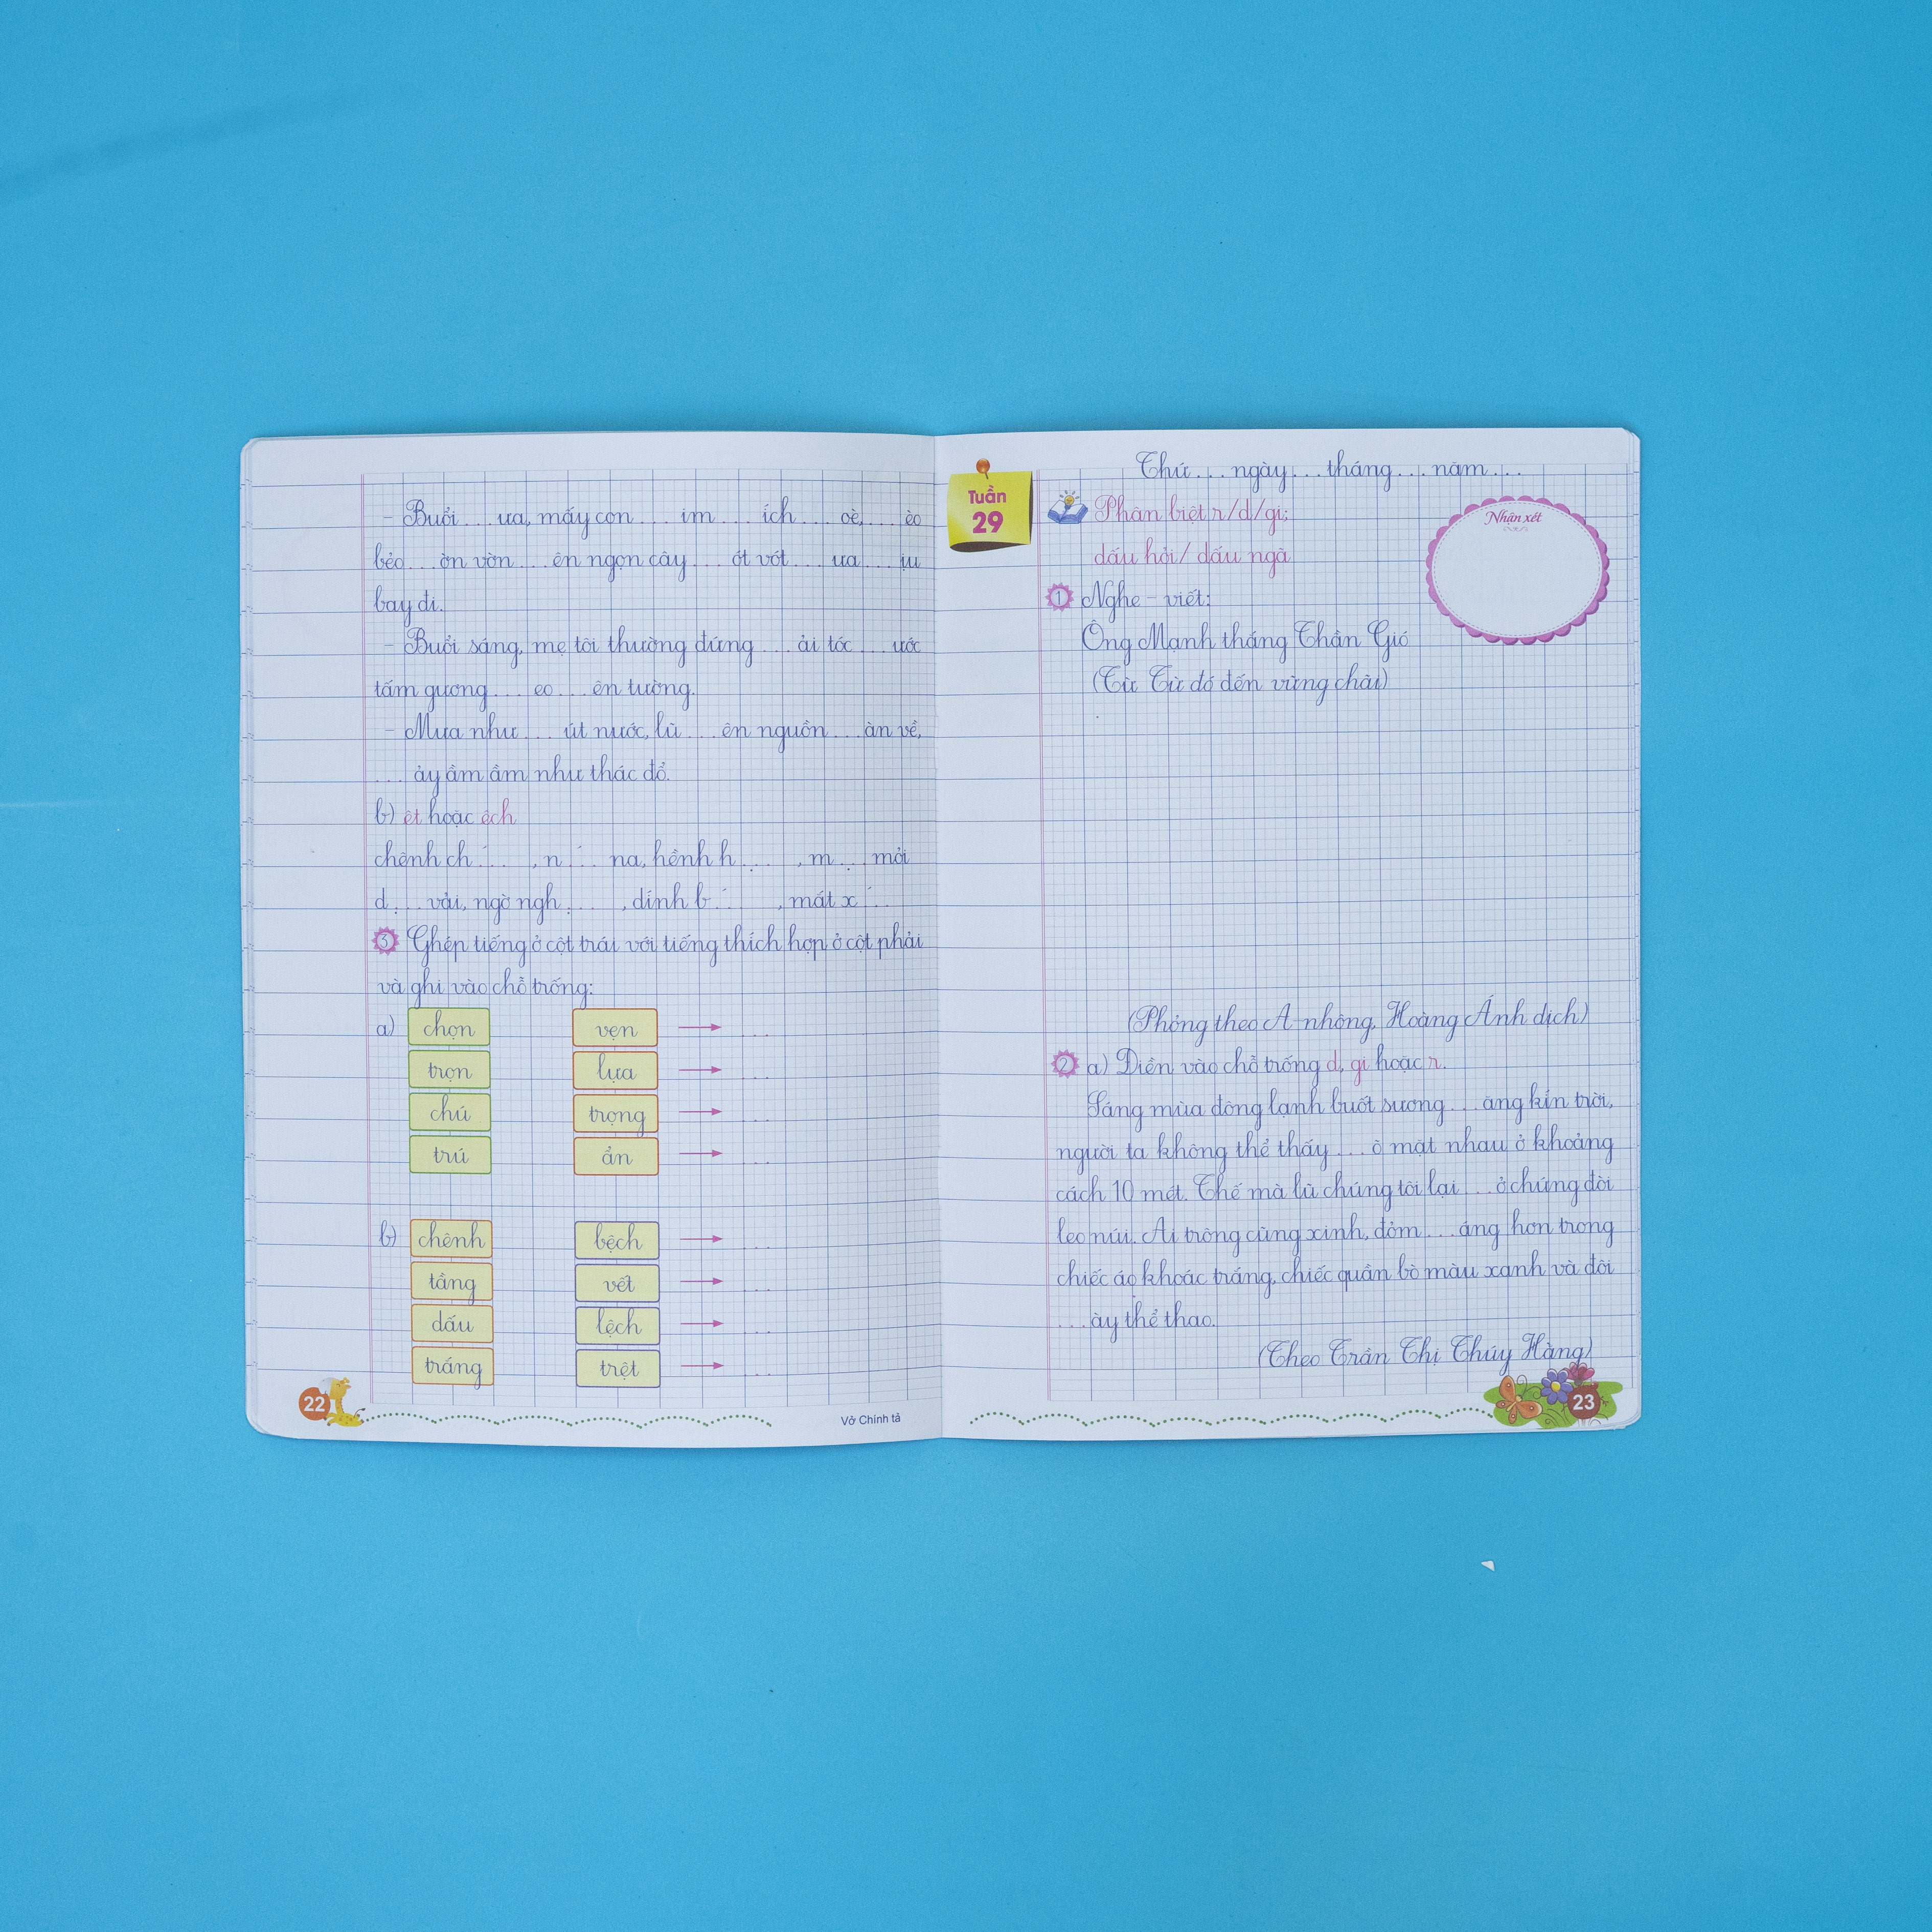 - Buổi ... ưa, mấy con ... im ... ích ... oè, ... èo
bẻo ... ờn vờn ... ên ngọn cây ... ót vót ... ưa ... ịu
bay đi.
- Buổi sáng, mẹ tôi thường đứng ... ải tóc ... ước
tấm gương ... eo ... ên tường.
- Mưa như ... út nước, lũ ... ên nguồn ... àn về,
... ảy ầm ầm như thác đổ.
b) êt hoặc êch
chênh ch ́... , n ́... na, hềnh h ̣... , m ̣... mỏi
d ̣... vải, ngờ ngh ̣... , dính b ́... , mắt x ́...
3 Ghép tiếng ở cột trái với tiếng thích hợp ở cột phải
và ghi vào chỗ trống:
a) chọn vẹn → ...
trọn lựa → ...
chú trọng → ...
trú ẩn → ...
b) chênh bệch → ...
tầng vết → ...
dấu lệch → ...
trắng trệt → ...
22
Vở Chính tả
Tuần
29
Thứ ... ngày ... tháng ... năm ...
Phân biệt r/d/gi;
dấu hỏi/ dấu ngã
Nhận xét
1 Nghe - viết:
Ông Mạnh thắng Thần Gió
(Từ Từ đó đến vững chãi)
(Phỏng theo A-nhông, Hoàng Ánh dịch)
2 a) Điền vào chỗ trống d, gi hoặc r.
Sáng mùa đông lạnh buốt sương ... ăng kín trời,
người ta không thể thấy ... õ mặt nhau ở khoảng
cách 10 mét. Thế mà lũ chúng tôi lại ... ở chứng đòi
leo núi. Ai trông cũng xinh, đỏm ... áng hơn trong
chiếc áo khoác trắng, chiếc quần bò màu xanh và đôi
... ày thể thao.
(Theo Trần Thị Thúy Hằng)
23